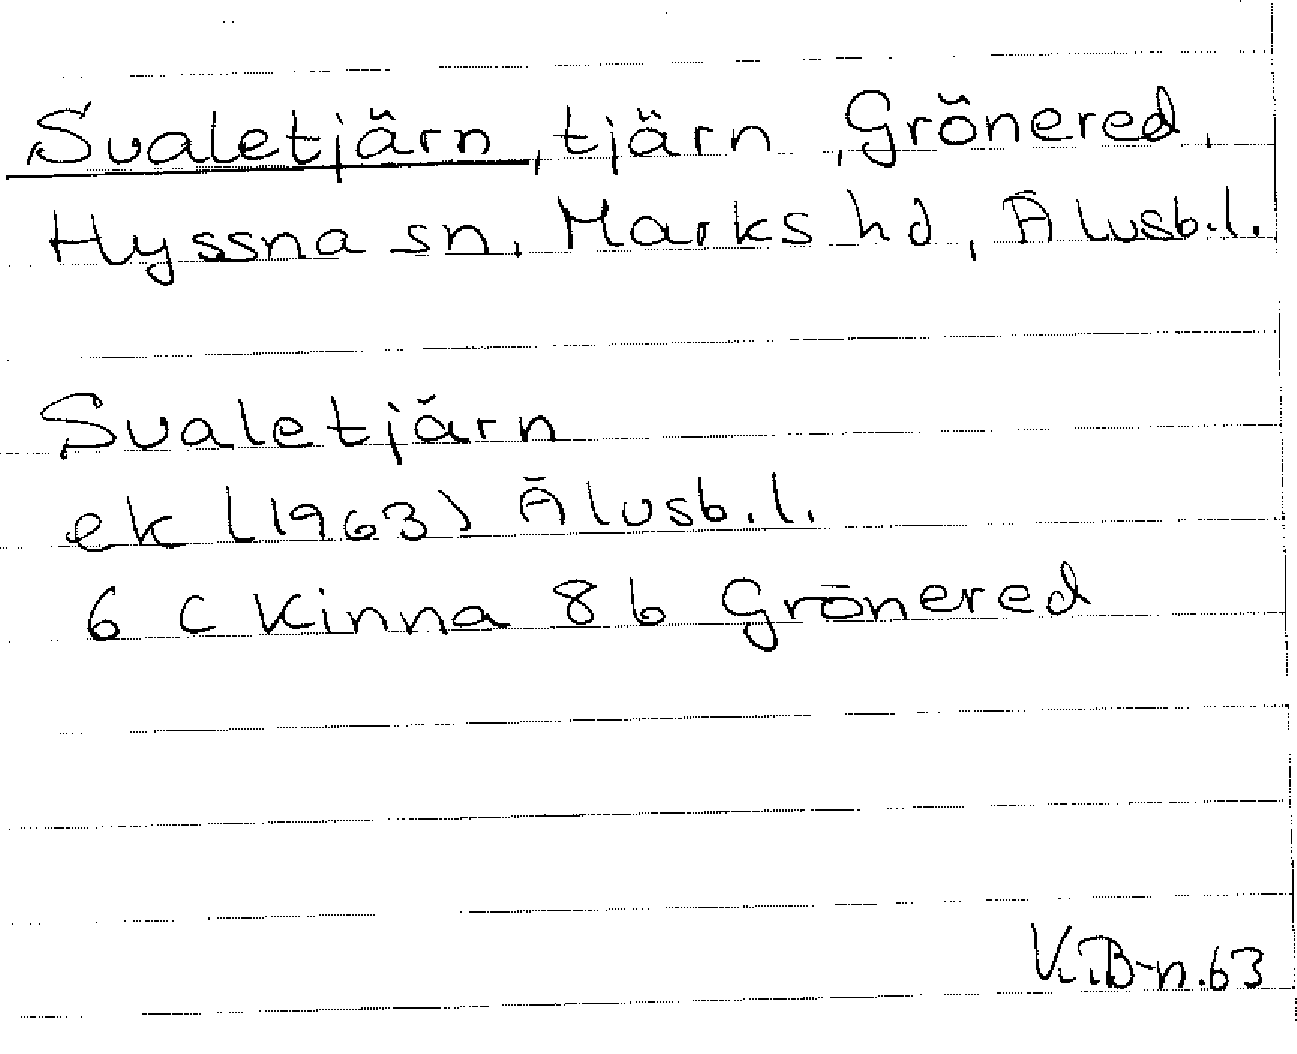 Svaletjärn, tjärn, Grönered,
Hyssna sn, Marks hd, Älvsb.l.
Svaletjärn
ek (1963) Älvsb.l.
6 C Kinna 8 b Grönered
V.:B-n.63